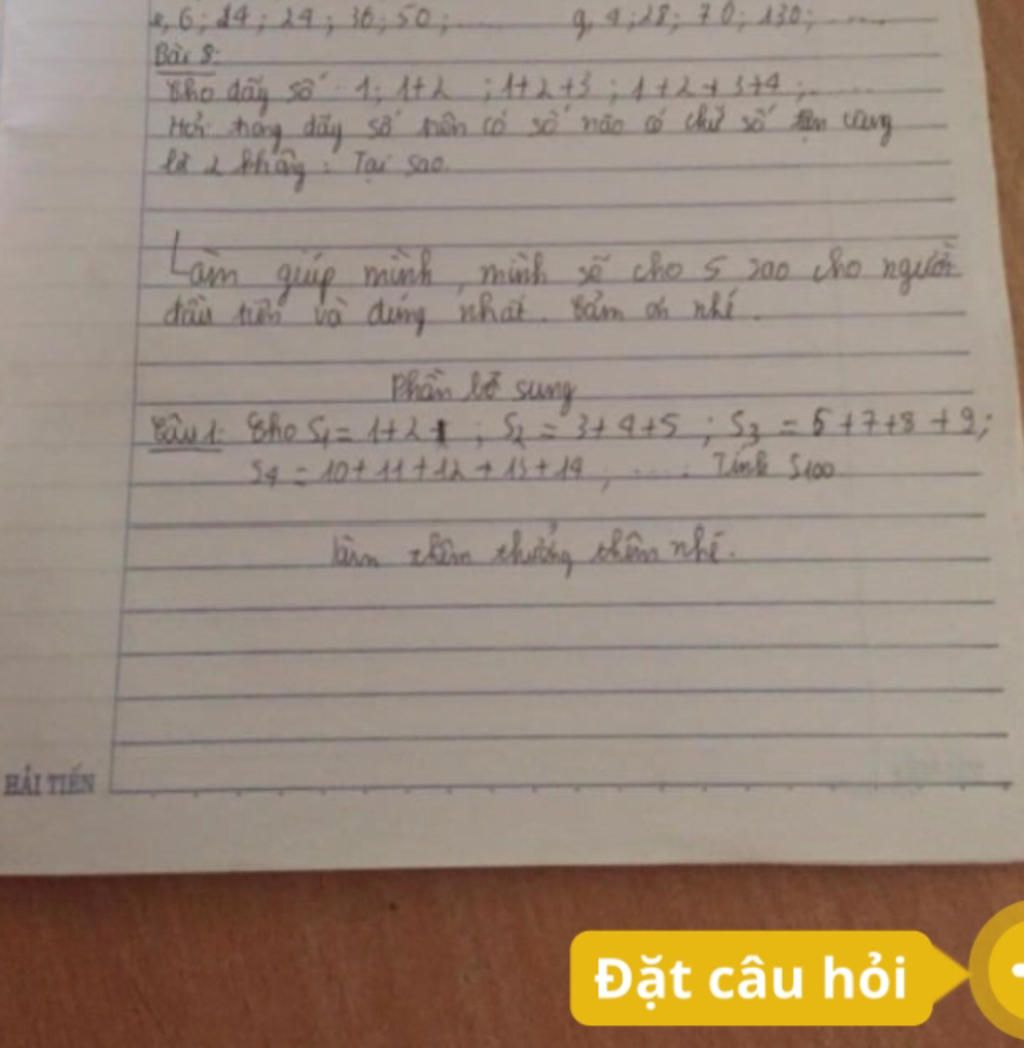 e, 6; 14; 24; 36; 50; ..... g, 4; 28; 70; 130; .....
Bài 8:
Cho dãy số 1; 1+2 ; 1+2+3 ; 1+2+3+4 ; .....
Hỏi trong dãy số trên có số nào có chữ số tận cùng
là 2 không ? Tại sao.
Làm giúp mình, mình sẽ cho 5 sao cho người
đầu tiên và đúng nhất. Cảm ơn nhé.
Phần bổ sung
Câu 1: Cho S1 = 1+2 ; S2 = 3+4+5 ; S3 = 6+7+8+9;
S4 = 10+11+12+13+14, ..... Tính S100
làm thêm thưởng thêm nhé.
HẢI TIẾN
Đặt câu hỏi